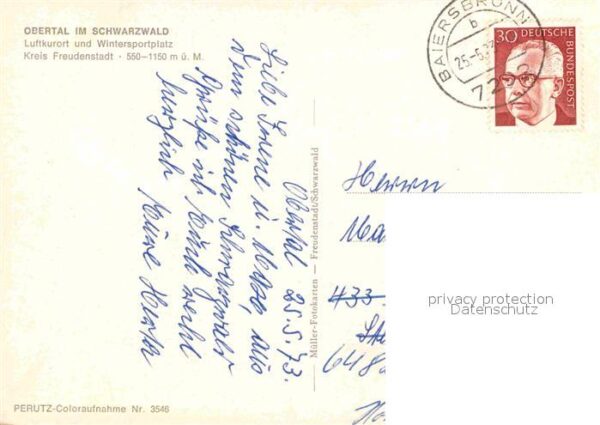 OBERTAL IM SCHWARZWALD
Luftkurort und Wintersportplatz
Kreis Freudenstadt · 550—1150 m ü. M.
Obertal 25.5.73.
Liebe Irene u. aus
dem schönen Schwarzwald
Grüße ich Euch recht
herzlich Eure Herta
Müller-Fotokarten — Freudenstadt/Schwarzwald
BAIERSBRONN
b
25.-5.73
7292
30
DEUTSCHE
BUNDESPOST
Herrn
433
648
privacy protection
Datenschutz
PERUTZ-Coloraufnahme Nr. 3546